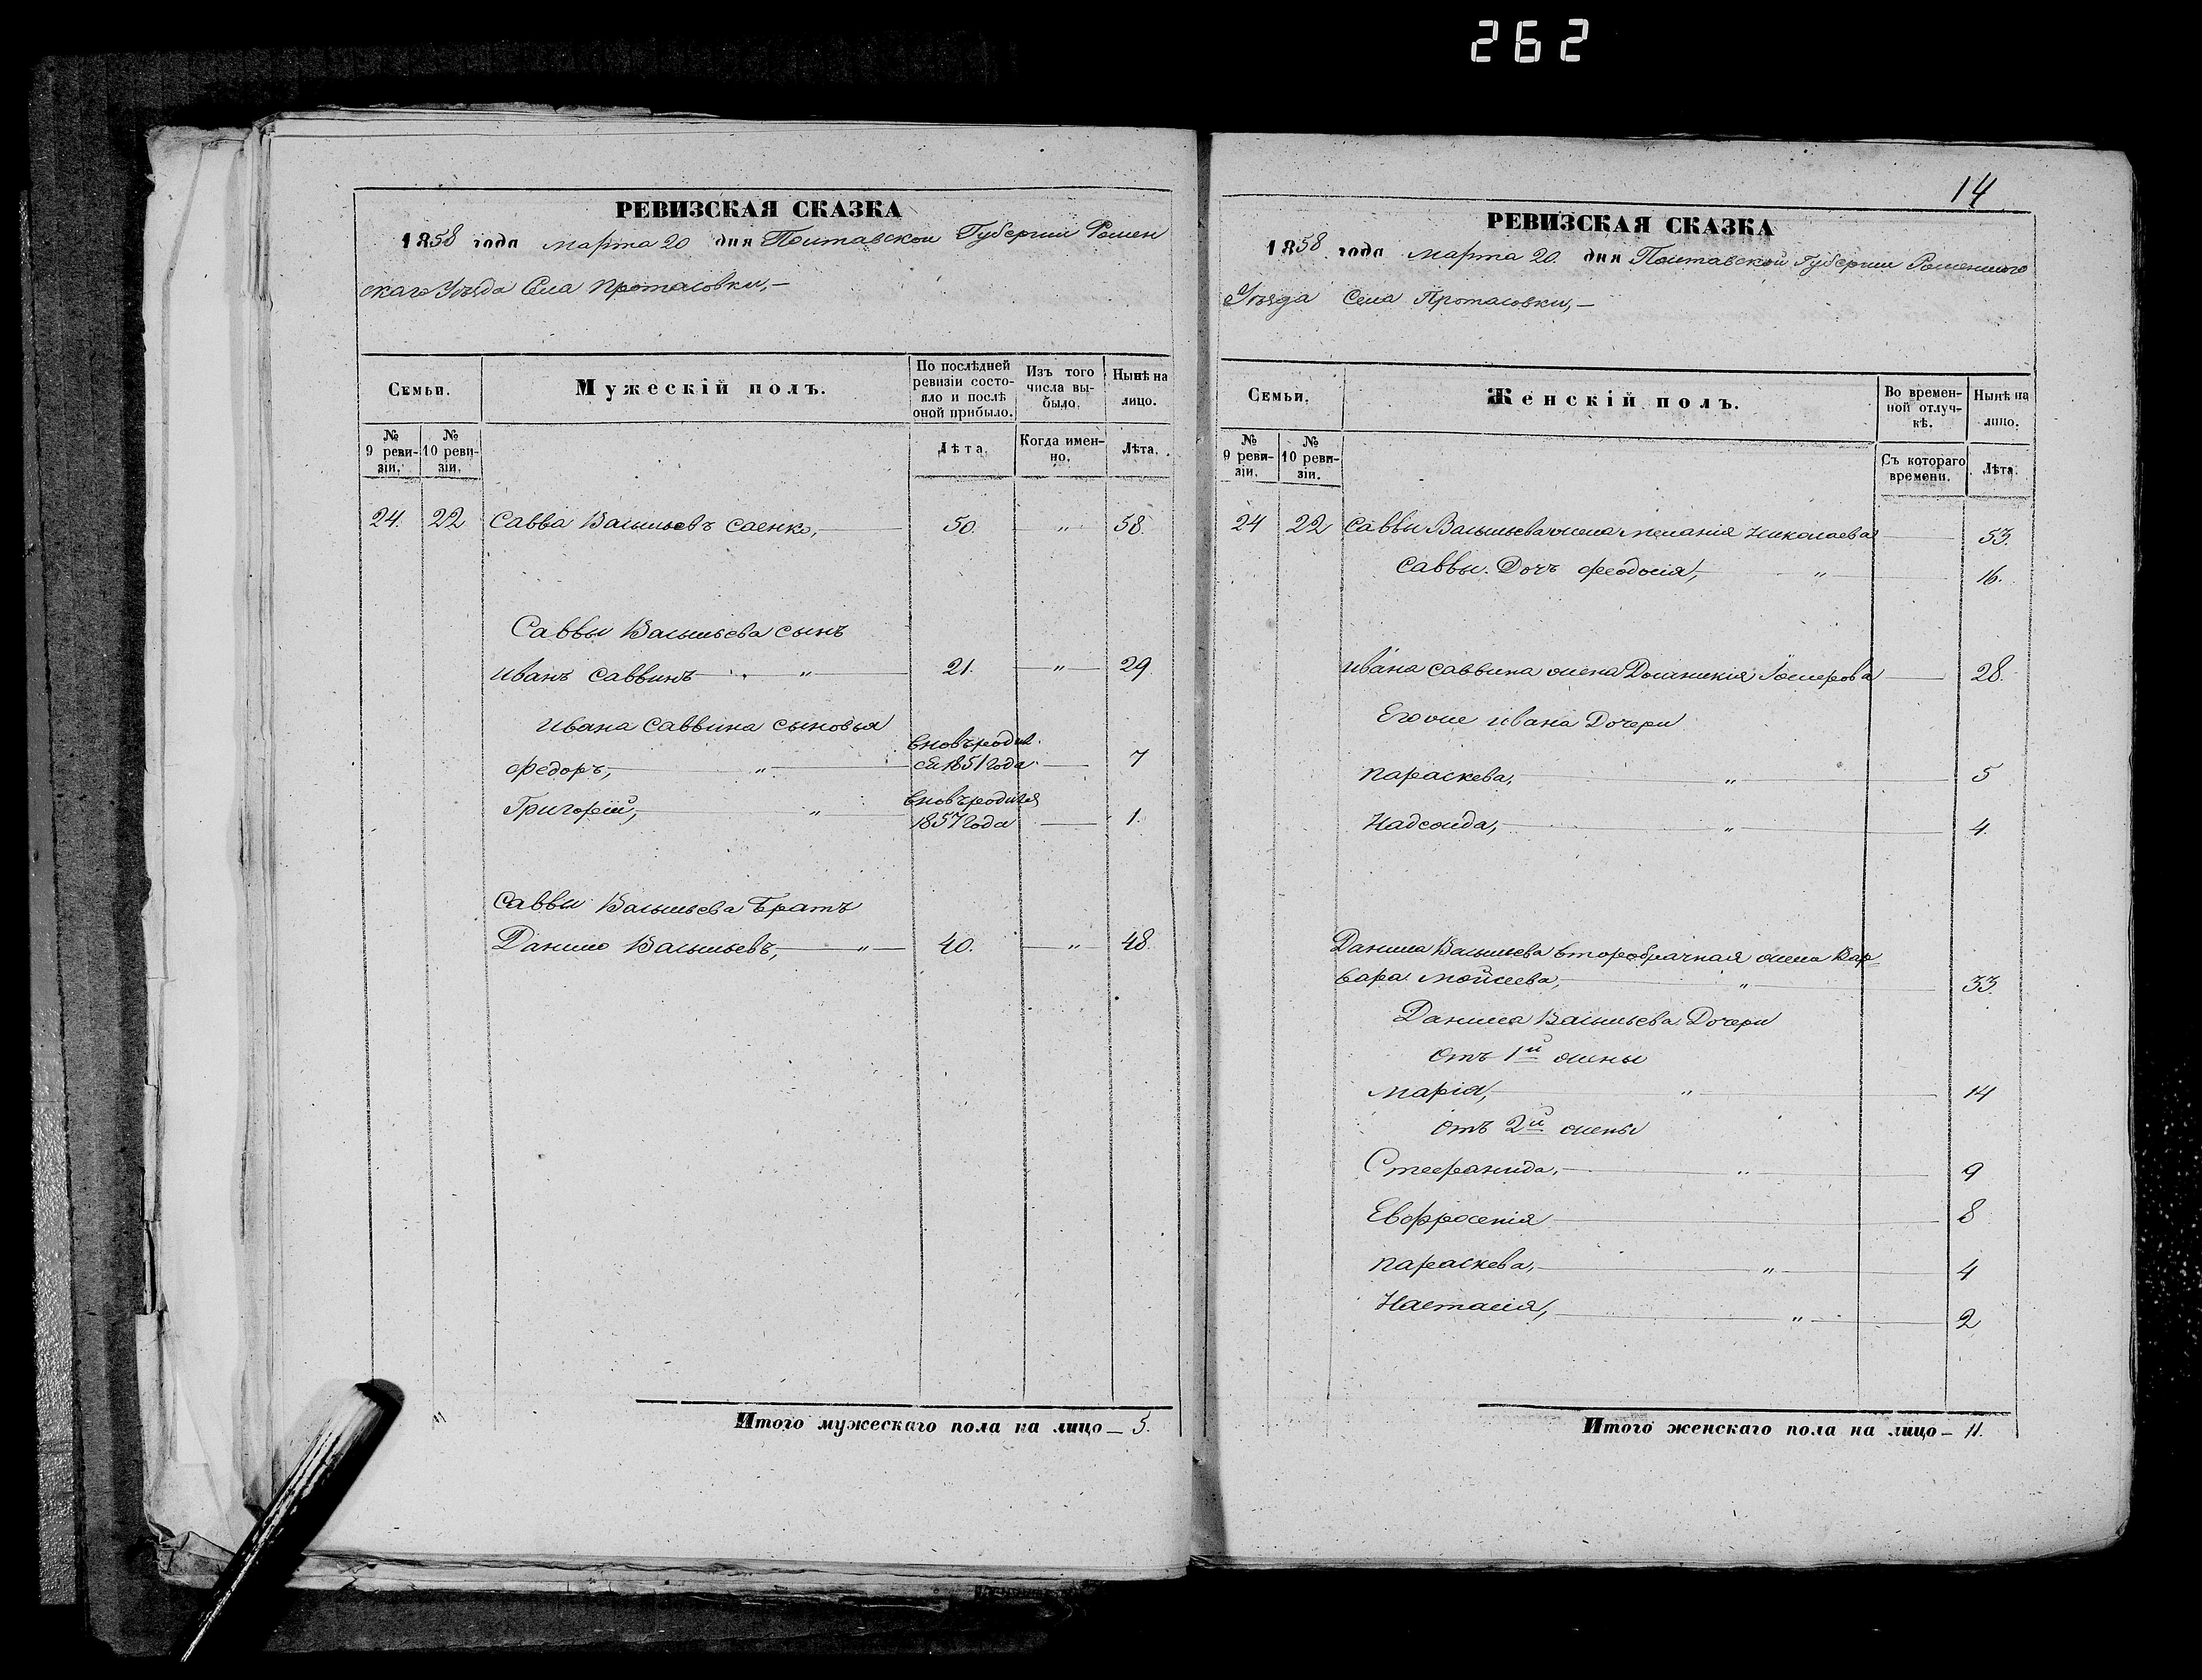 262
РЕВИЗСКАЯ СКАЗКА
1858 года марта 20 дня Полтавской Губернии Ромен
скаго Уѣзда Села Протасовки,—
Семьи.
Мужескій полъ.
По послѣдней ревизіи состояло и послѣ оной прибыло.
Изъ того числа выбыло.
Нынѣ на лицо.
№ 9 ревизіи.
№ 10 ревизіи.
Лѣта.
Когда именно.
Лѣта.
24. 22 Савва Васильевъ Саенко, 50. " 58.
Саввы Васильева сынъ
Иванъ Саввинъ " 21. " 29
Ивана Саввина сыновья
Федоръ, " вновь родил
ся 1851 года 7
Григорій, " вновь родился
1857 года 1.
Саввы Васильева Братъ
Данило Васильевъ, " 40. " 48.
Итого мужескаго пола на лицо — 5.
14
РЕВИЗСКАЯ СКАЗКА
1858 года марта 20. дня Полтавской Губернии Роменского
Уѣзда Села Протасовки,—
Семьи.
Женскій полъ.
Во временной отлучкѣ.
Нынѣ на лицо.
№ 9 ревизіи.
№ 10 ревизіи.
Съ котораго времени.
Лѣта.
24 22 Саввы Васильева жена Меланія Николаева 53.
Саввы. Дочь Феодосія, " 16.
Ивана Саввина жена Домникія 28.
Его же Ивана Дочери
Параскева, " 5
Надежда, " 4.
Данила Васильева второбрачная жена Вар
вара Мойсеева, " 33.
Данила Васильева Дочери
Отъ 1й жены
Марія, " 14
Отъ 2й жены
Стефанида, " 9
Евфросенія 8
Параскева, " 4
Настасія, " 2
Итого женскаго пола на лицо — 11.